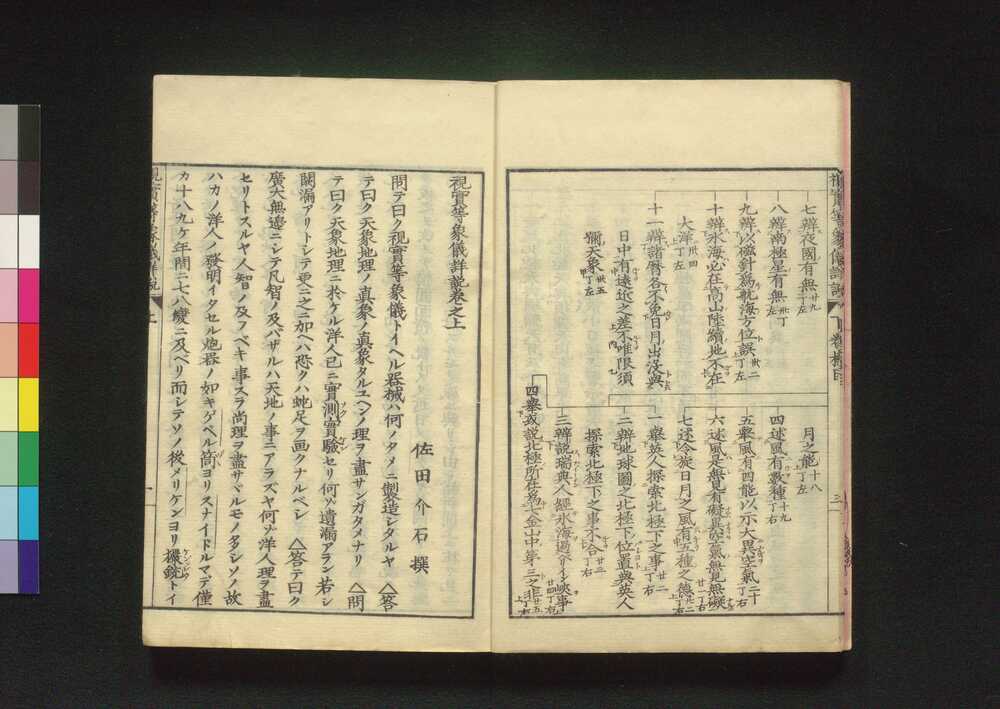 七辨夜國有無 廿九丁左
八辨南極星有無 卅丁左
九辨以磁針爲航海方位誤 卅二丁左
十辨氷海必在高山陸續地不在
大洋 卅四丁左
十一辨諸曆各不免日月出沒與
日中有遠近之差不唯限須
彌天象 卅五丁左
月之能 十八丁左
四述風有數種 十九丁右
五擧風有四能以示大異空氣 二十丁右
六述風是無見有礙異空氣無見無礙 廿一丁右
七述冷旋日月之風有五種之德 廿二丁右
一擧英人探索北極下之事 廿二丁右
二辨地球圖之北極下位置與英人
探索北極下之事不合 廿三丁右
三辨說瑞典人經氷海過ベーリイン峽事 廿四丁右
四擧或說北極所在爲七金山中第三之非 廿五丁右
視實等象儀詳說卷之上
佐田介石撰
問テ曰ク視實等象儀トイヘル器械ハ何ノタメニ製造シタルヤ △答
テ曰ク天象地理ノ眞象ノ眞象タルユヘンノ理ヲ盡サンガタメナリ △問
テ曰ク天象地理ニ於ケル洋人已ニ實測實驗セリ何ソ遺漏アラン若シ
闕漏アリトシテ更ニ之ニ加ヘハ恐クハ蛇足ヲ画クナルベシ △答テ曰ク
廣大無邊ニシテ凡智ノ及バザルハ天地ノ事ニアラズヤ何ソ洋人理ヲ盡
セリトスルヤ人智ノ及フベキ事スラ尚理ヲ盡サヾルモノ多シソノ故
ハカノ洋人ノ發明イタセル炮器ノ如キゲベル筒ヨリスナイドルマデ僅
カ十八九ケ年間ニ七八變ニ及ベリ而シテソノ後メリケンヨリ 銃トイ